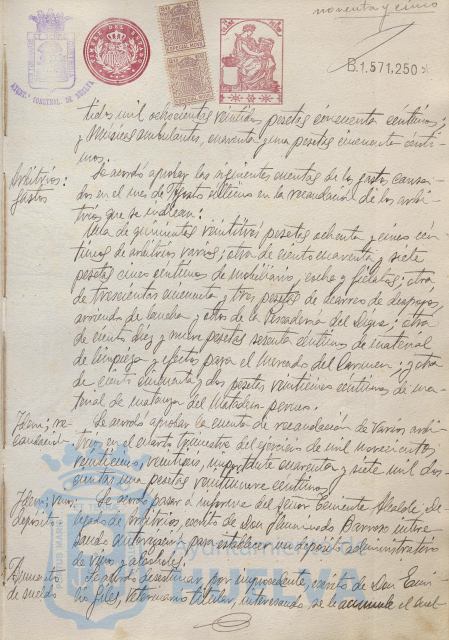 noventa y cinco
AYUNT. CONSTNAL. DE HUELVA
TIMBRE DEL ESTADO
ESPECIAL MOVIL
ESPECIAL MOVIL
B.1.571.250
tidos mil ochocientas veintiun pesetas cincuenta centimos;
y Músicos ambulantes, cuarenta y una pesetas cincuenta cénti-
mos.
Arbitrios: Se acordó aprobar las siguientes cuentas de los gastos causa-
gastos dos en el mes de Agosto último en la recaudación de los arbi-
trios que se indican:
Una de quinientas veintitrés pesetas ochenta y cinco cén-
timos de arbitrios varios; otra de ciento cuarenta y siete
pesetas cinco centimos de Mobiliario, coche y fielatos; otra
de trescientas cincuenta y tres pesetas de acarreo de despojos,
arriendo de lancha y otros de la Pescadería del Dique; otra
de ciento diez y nueve pesetas sesenta centimos de material
de limpieza y efectos para el Mercado del Carmen; y otra
de ciento cincuenta y dos pesetas veinticinco centimos de ma-
terial de matanza del Matadero
Idem; re- Se acordó aprobar la cuenta de recaudación de varios arbi-
caudación trios en el cuarto trimestre del ejercicio de mil novecientos
veinticinco, veintiseis, importante cuarenta y siete mil dos-
cientas una pesetas veintinueve centimos.
Idem; vino: Se acordó pasar á informe del Señor Teniente Alcalde De-
depósito legado de Arbitrios, escrito de Don Barroso intere-
sando autorización para establecer un depósito administrativo
de vino y alcoholes.
Aumento Se acordó desestimar, por improcedente, escrito de Don
de sueldo Veterinario titular, interesando se le acumule el suel-
PORTUS MARIS
Ayuntamiento de
HUELVA